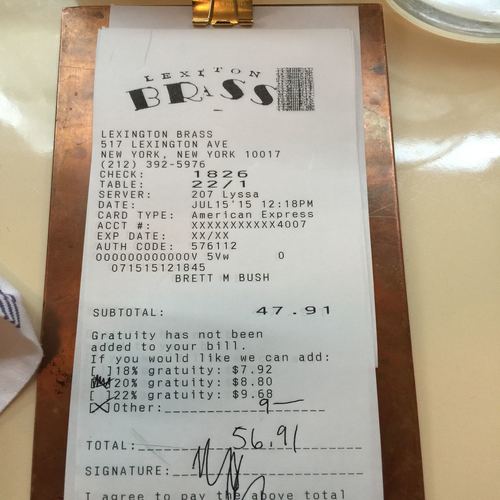 LEXITON
BRASS
LEXINGTON BRASS
517 LEXINGTON AVE
NEW YORK, NEW YORK 10017
(212) 392-5976
CHECK: 1826
TABLE: 22/1
SERVER: 207 Lyssa
DATE: JUL15'15 12:18PM
CARD TYPE: American Express
ACCT #: XXXXXXXXXXX4007
EXP DATE: XX/XX
AUTH CODE: 576112
000000000000V 5Vw 0
071515121845
BRETT M BUSH
SUBTOTAL: 47.91
Gratuity has not been
added to your bill.
If you would like we can add:
[ ]18% gratuity: $7.92
20% gratuity: $8.80
[ ]22% gratuity: $9.68
[X]Other: 9—
TOTAL: 56.91
SIGNATURE:
I agree to pay the above total